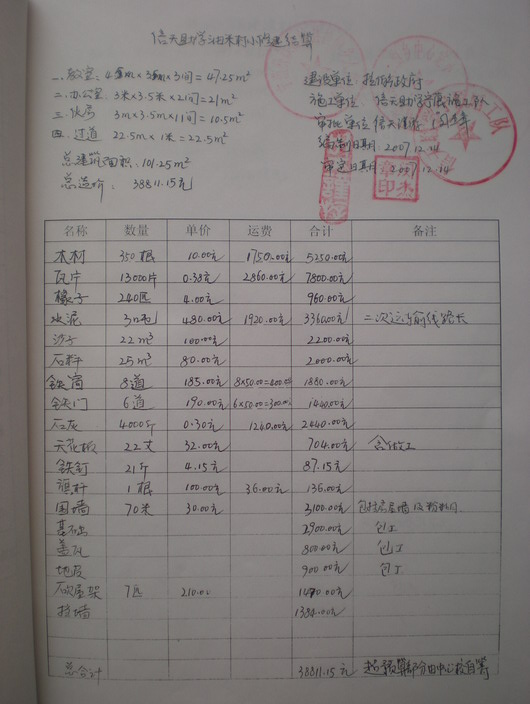 倍天助学 村小修建结算
一、教室: 4 m×3 m×3间=47.25m²
二、办公室: 3米×3.5米×2间=21m²
三、伙房 3m×3.5m×1间=10.5m²
四、过道 22.5m×1米=22.5m²
总建筑面积: 101.25m²
总造价: 38811.15元
建设单位: 政府
施工单位: 倍天助学 施工队
审批单位
编制日期: 2007.12.14
审定日期: 2007.12.14
名称 数量 单价 运费 合计 备注
木材 350根 10.00元 1750.00元 5250.00元
瓦片 13000片 0.38元 2860.00元 7800.00元
椽子 240匹 4.00元 960.00元
水泥 3吨 480.00元 1920.00元 3360.00元 二次运输线路长
沙子 22m³ 100.00元 2200.00元
石料 25m³ 80.00元 2000.00元
铁窗 8道 185.00元 8×50.00=400.00元 1880.00元
铁门 6道 190.00元 6×50.00=300.00元 1440.00元
石灰 4000斤 0.30元 1240.00元 2440.00元
天花板 22丈 32.00元 704.00元 含做工
铁钉 21斤 4.15元 87.15元
旗杆 1根 100.00元 36.00元 136.00元
围墙 70米 30.00元 2100.00元 包括房屋墙 粉
基础 2900.00元 包工
盖瓦 800.00元 包工
地皮 900.00元 包工
屋架 7匹 210.00 1470.00元
拉墙 1384.00元
总合计 38811.15元 超预算部分由中心校自筹